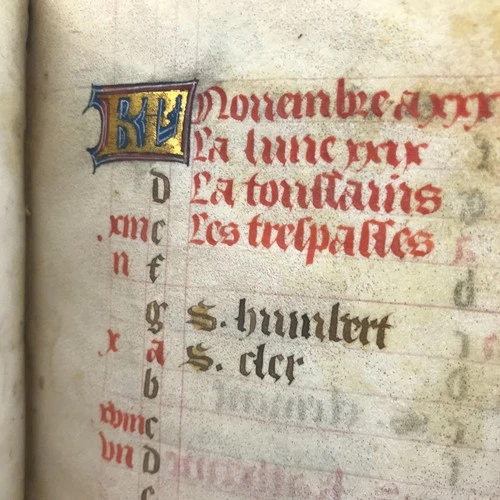 KL Nouembre a xxx
La lune xxix
D La toussains
xiii e Les trespasses
ii f
g S. humbert
x a S. cler
b
xviii c
vii D
e